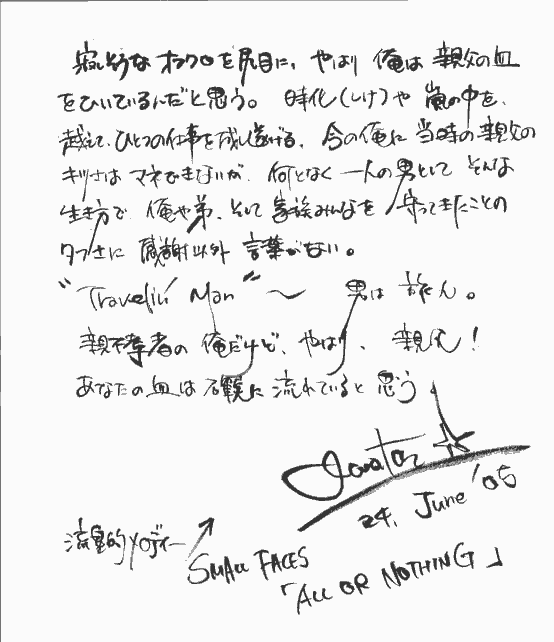 寂しそうなオフクロを尻目に、やはり俺は親父の血
をひいているんだと思う。時化(しけ)や嵐の中を、
越えて、ひとつの仕事を成し遂げる、今の俺に当時の親父の
キツさはマネできないが、何となく一人の男としてそんな
生き方で俺や弟、そして家族みんなを守ってきたことの
タフさに感謝以外言葉がない。
"Travelin' Man"〜男は旅人。
親不孝者の俺だけど、やはり、親父!
あなたの血は確実に流れていると思う
24, June '05
流星的メロディー
SMALL FACES
「ALL OR NOTHING」